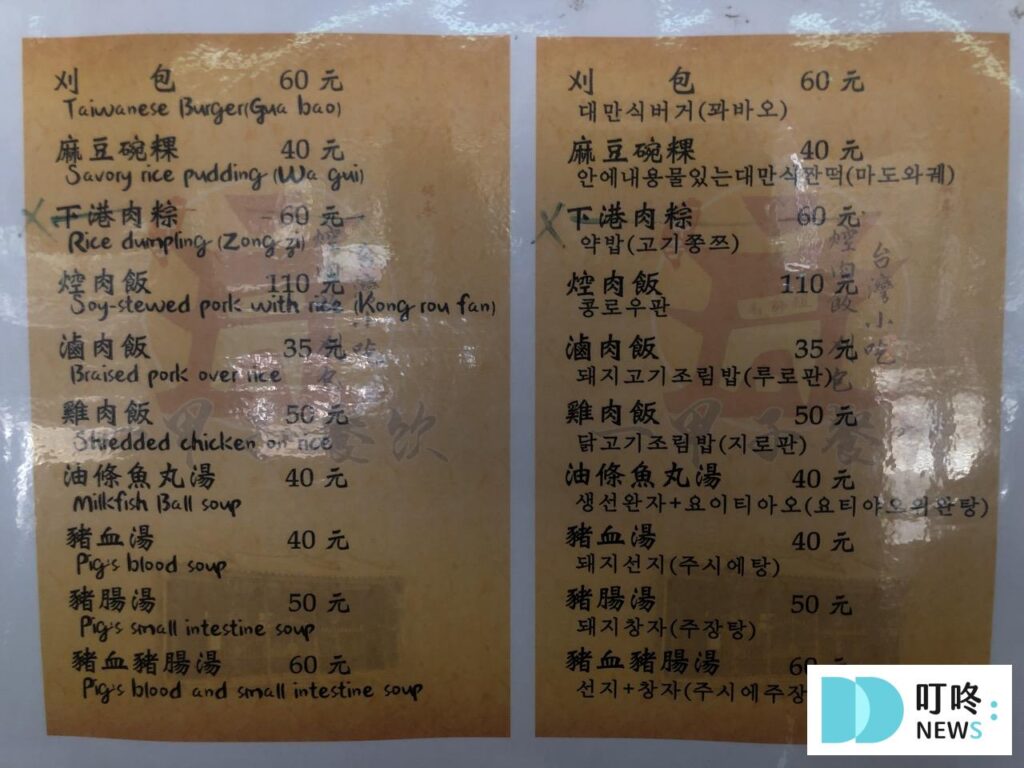 刈 包 60 元
Taiwanese Burger(Gua bao)
麻豆碗粿 40 元
Savory rice pudding (Wa gui)
下港肉粽 60 元
Rice dumpling (Zong zi)
焢肉飯 110 元
Soy-stewed pork with rice (Kong rou fan)
滷肉飯 35 元
Braised pork over rice
雞肉飯 50 元
Shredded chicken on rice
油條魚丸湯 40 元
Milkfish Ball soup
豬血湯 40 元
Pig's blood soup
豬腸湯 50 元
Pig's small intestine soup
豬血豬腸湯 60 元
Pig's blood and small intestine soup
刈 包 60 元
대만식버거(꽈바오)
麻豆碗粿 40 元
안에내용물있는대만식짠떡(마도와궤)
下港肉粽 60 元
약밥(고기쫑쯔)
焢肉飯 110 元
콩로우판
滷肉飯 35 元
돼지고기조림밥(루로판)
雞肉飯 50 元
닭고기조림밥(지로판)
油條魚丸湯 40 元
생선완자+요이티아오(요티야오위완탕)
豬血湯 40 元
돼지선지(주시에탕)
豬腸湯 50 元
돼지창자(주장탕)
豬血豬腸湯 60
선지+창자(주시에주장
台灣小吃
甲子餐飲
叮咚
NEWS